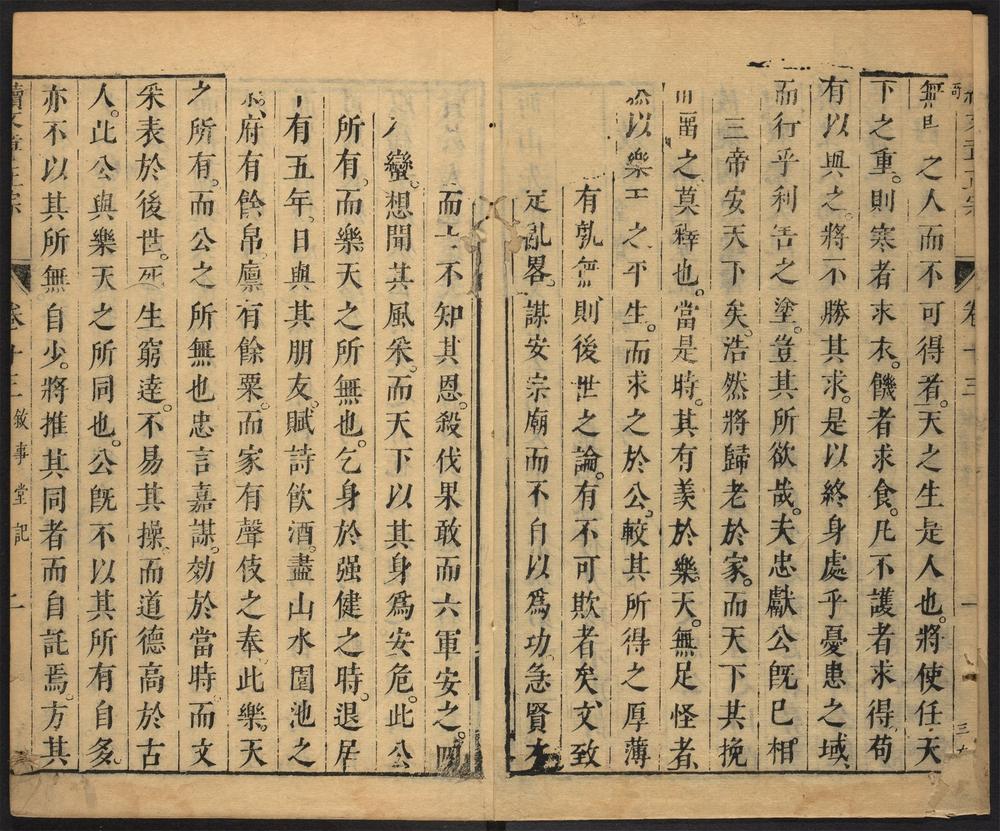 之人而不可得者。天之生是人也。將使任天
下之重。則寒者求衣。饑者求食。凡不護者求得苟
有以與之。將不勝其求。是以終身處乎憂患之域、
而行乎利害之塗。豈其所欲哉。夫忠獻公旣已相
三帝安天下矣。浩然將歸老於家。而天下其挽
而畱之莫釋也。當是時。其有羨於樂天。無足怪者、
然以樂天之平生。而求之於公。較其所得之厚薄
有孰無則後世之論。有不可欺者矣。文致
定亂畧。謀安宗廟而不自以爲功。急賢才
而士不知其恩。殺伐果敢而六軍安之。四
蠻。想聞其風采。而天下以其身爲安危。此公
所有。而樂天之所無也。乞身於强健之時。退居
十有五年。日與其朋友。賦詩飮酒。盡山水園池之
樂。府有餘帛。廪有餘粟。而家有聲伎之奉。此樂天
之所有。而公之所無也。忠言嘉謀。効於當時。而文
采表於後世。死生窮達。不易其操。而道德高於古
人。此公與樂天之所同也。公旣不以其所有自多。
亦不以其所無自少。將推其同者而自託焉。方其
續文章正宗 卷十三 敘事 堂記 二